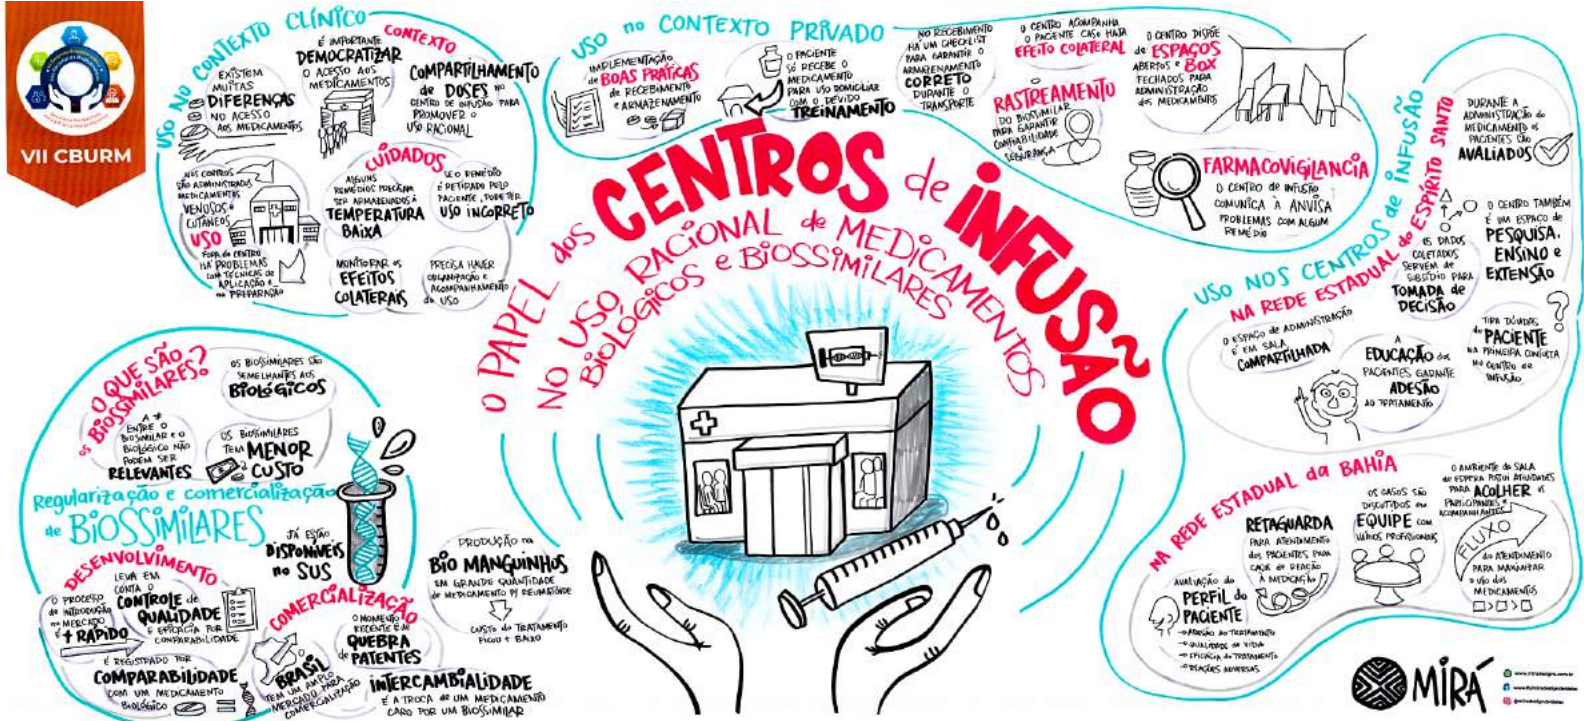 VII CBURM
USO NO CONTEXTO CLÍNICO
CONTEXTO
EXISTEM
MUITAS
DIFERENÇAS
NO ACESSO
AOS MEDICAMENTOS
É IMPORTANTE
DEMOCRATIZAR
O ACESSO AOS
MEDICAMENTOS
COMPARTILHAMENTO
de DOSES NO
CENTRO DE INFUSÃO PARA
PROMOVER O
USO RACIONAL
NOS CENTROS
SÃO ADMINISTRADOS
MEDICAMENTOS
VENOSOS e
CUTÂNEOS
USO
FORA do CENTRO
HÁ PROBLEMAS
COM TÉCNICAS de
APLICAÇÃO E
na PREPARAÇÃO
CUIDADOS
ALGUNS
REMÉDIOS PRECISAM
SER ARMAZENADOS À
TEMPERATURA
BAIXA
SE O REMÉDIO
É RETIRADO PELO
PACIENTE, PODE TER
USO INCORRETO
MONITORAR OS
EFEITOS
COLATERAIS
PRECISA HAVER
ORGANIZAÇÃO e
ACOMPANHAMENTO
do USO
USO no CONTEXTO PRIVADO
IMPLEMENTAÇÃO
de BOAS PRÁTICAS
de RECEBIMENTO
e ARMAZENAMENTO
O PACIENTE
SÓ RECEBE O
MEDICAMENTO
PARA USO DOMICILIAR
COM O DEVIDO
TREINAMENTO
NO RECEBIMENTO
HÁ UM CHECKLIST
PARA GARANTIR O
ARMAZENAMENTO
CORRETO
DURANTE O
TRANSPORTE
O CENTRO ACOMPANHA
O PACIENTE CASO HAJA
EFEITO COLATERAL
RASTREAMENTO
DO BIOSSIMILAR
PARA GARANTIR
CONFIABILIDADE
e SEGURANÇA
O CENTRO DISPÕE
de ESPAÇOS
ABERTOS e BOX
FECHADOS PARA
ADMINISTRAÇÃO
dos MEDICAMENTOS
FARMACOVIGILANCIA
O CENTRO de INFUSÃO
COMUNICA À ANVISA
PROBLEMAS COM ALGUM
REMÉDIO
O PAPEL dos CENTROS de INFUSÃO
NO USO RACIONAL de MEDICAMENTOS
BIOLÓGICOS e BIOSSIMILARES
USO NOS CENTROS de INFUSÃO
NA REDE ESTADUAL do ESPÍRITO SANTO
O ESPAÇO de ADMINISTRAÇÃO
É EM SALA
COMPARTILHADA
A
EDUCAÇÃO dos
PACIENTES GARANTE
ADESÃO
AO TRATAMENTO
OS DADOS
COLETADOS
SERVEM de
SUBSÍDIO PARA
TOMADA de
DECISÃO
DURANTE A
ADMINISTRAÇÃO do
MEDICAMENTO OS
PACIENTES SÃO
AVALIADOS
O CENTRO TAMBÉM
É UM ESPAÇO de
PESQUISA,
ENSINO e
EXTENSÃO
TIRA DÚVIDAS
do PACIENTE
NA PRIMEIRA CONSULTA
NO CENTRO de
INFUSÃO
?
NA REDE ESTADUAL da BAHIA
AVALIAÇÃO do
PERFIL do
PACIENTE
→ ADESÃO AO TRATAMENTO
→ QUALIDADE de VIDA
→ EFICÁCIA do TRATAMENTO
→ REAÇÕES ADVERSAS
RETAGUARDA
PARA ATENDIMENTO
dos PACIENTES PARA
CASOS de REAÇÃO
À MEDICAÇÃO
OS CASOS SÃO
DISCUTIDOS em
EQUIPE COM
VÁRIOS PROFISSIONAIS
O AMBIENTE da SALA
de ESPERA POSSUI ATIVIDADES
PARA ACOLHER OS
PARTICIPANTES e
ACOMPANHANTES
FLUXO
do ATENDIMENTO
PARA MAXIMIZAR
o USO dos
MEDICAMENTOS
O QUE SÃO
os BIOSSIMILARES?
OS BIOSSIMILARES SÃO
SEMELHANTES AOS
BIOLÓGICOS
A ≠
ENTRE O
BIOSIMILAR e O
BIOLÓGICO NÃO
PODEM SER
RELEVANTES
OS BIOSSIMILARES
TEM MENOR
CUSTO
Regularização e comercialização
de BIOSSIMILARES
JÁ ESTÃO
DISPONÍVEIS
no SUS
DESENVOLVIMENTO
O PROCESSO
de INTRODUÇÃO
no MERCADO
É + RÁPIDO
LEVA EM
CONTA O
CONTROLE de
QUALIDADE
E EFICÁCIA POR
COMPARABILIDADE
É REGISTRADO POR
COMPARABILIDADE
COM UM MEDICAMENTO
BIOLÓGICO
=
COMERCIALIZAÇÃO
BRASIL
TEM UM AMPLO
MERCADO PARA
COMERCIALIZAÇÃO
O MOMENTO
RECENTE É de
QUEBRA
de PATENTES
INTERCAMBIALIDADE
É A TROCA de UM MEDICAMENTO
CARO POR UM BIOSSIMILAR
PRODUÇÃO na
BIO MANGUINHOS
EM GRANDE QUANTIDADE
de MEDICAMENTO P/ REUMATÓIDE
CUSTO do TRATAMENTO
FICOU + BAIXO
MIRÁ